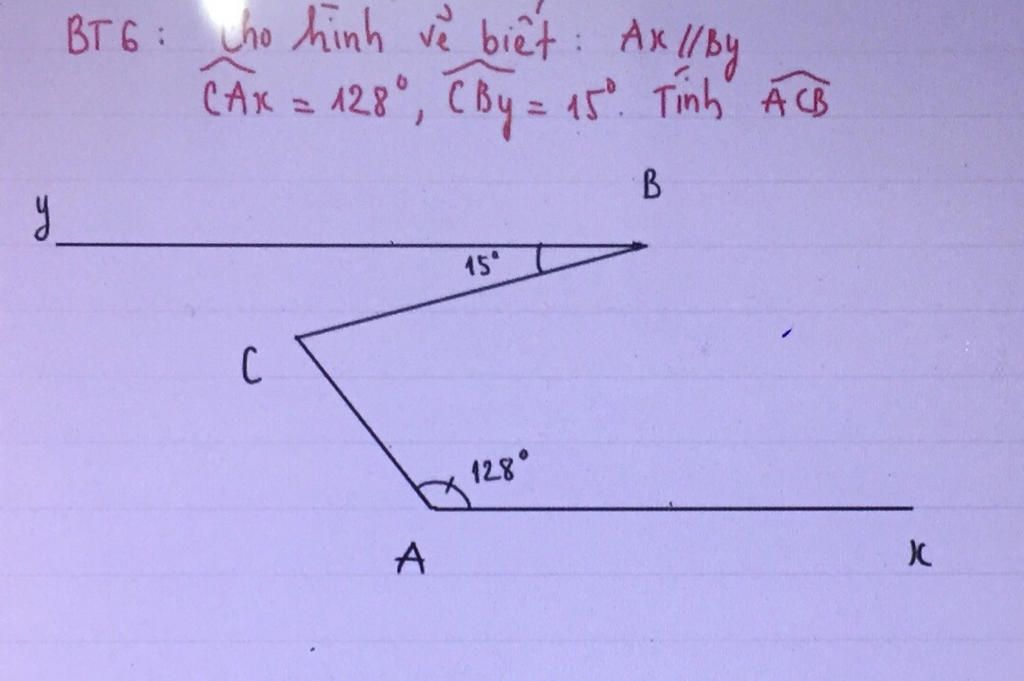 BT6: Cho hình vẽ biết: Ax // By
CAx = 128°, CBy = 15°. Tính ACB
B
y
15°
C
128°
A
x